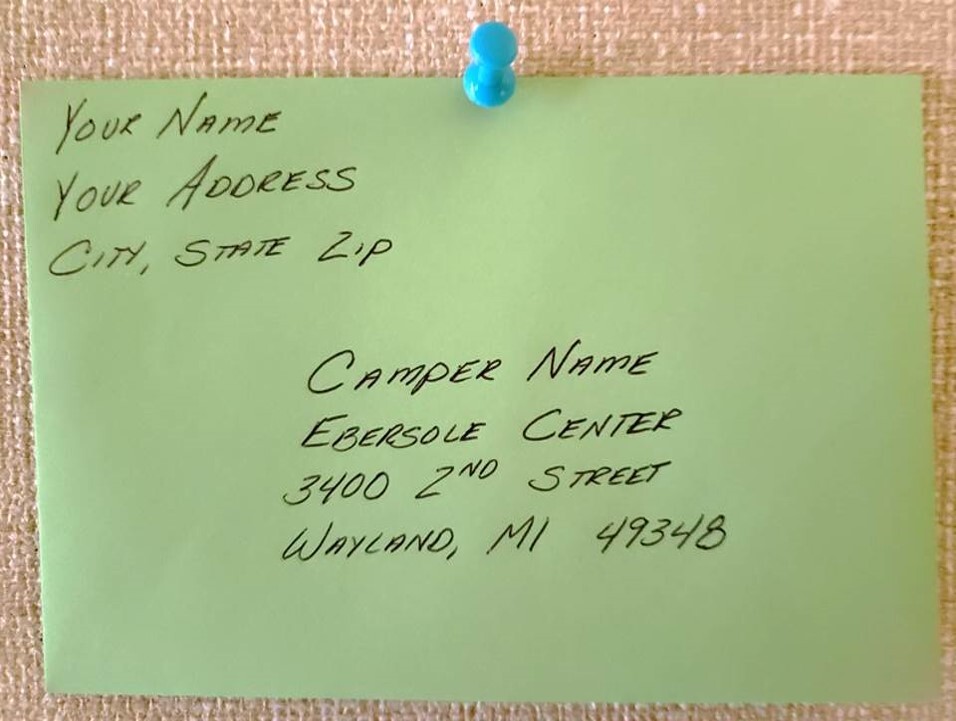 Your Name
Your Address
City, State Zip
Camper Name
Ebersole Center
3400 2nd Street
Wayland, MI 49348